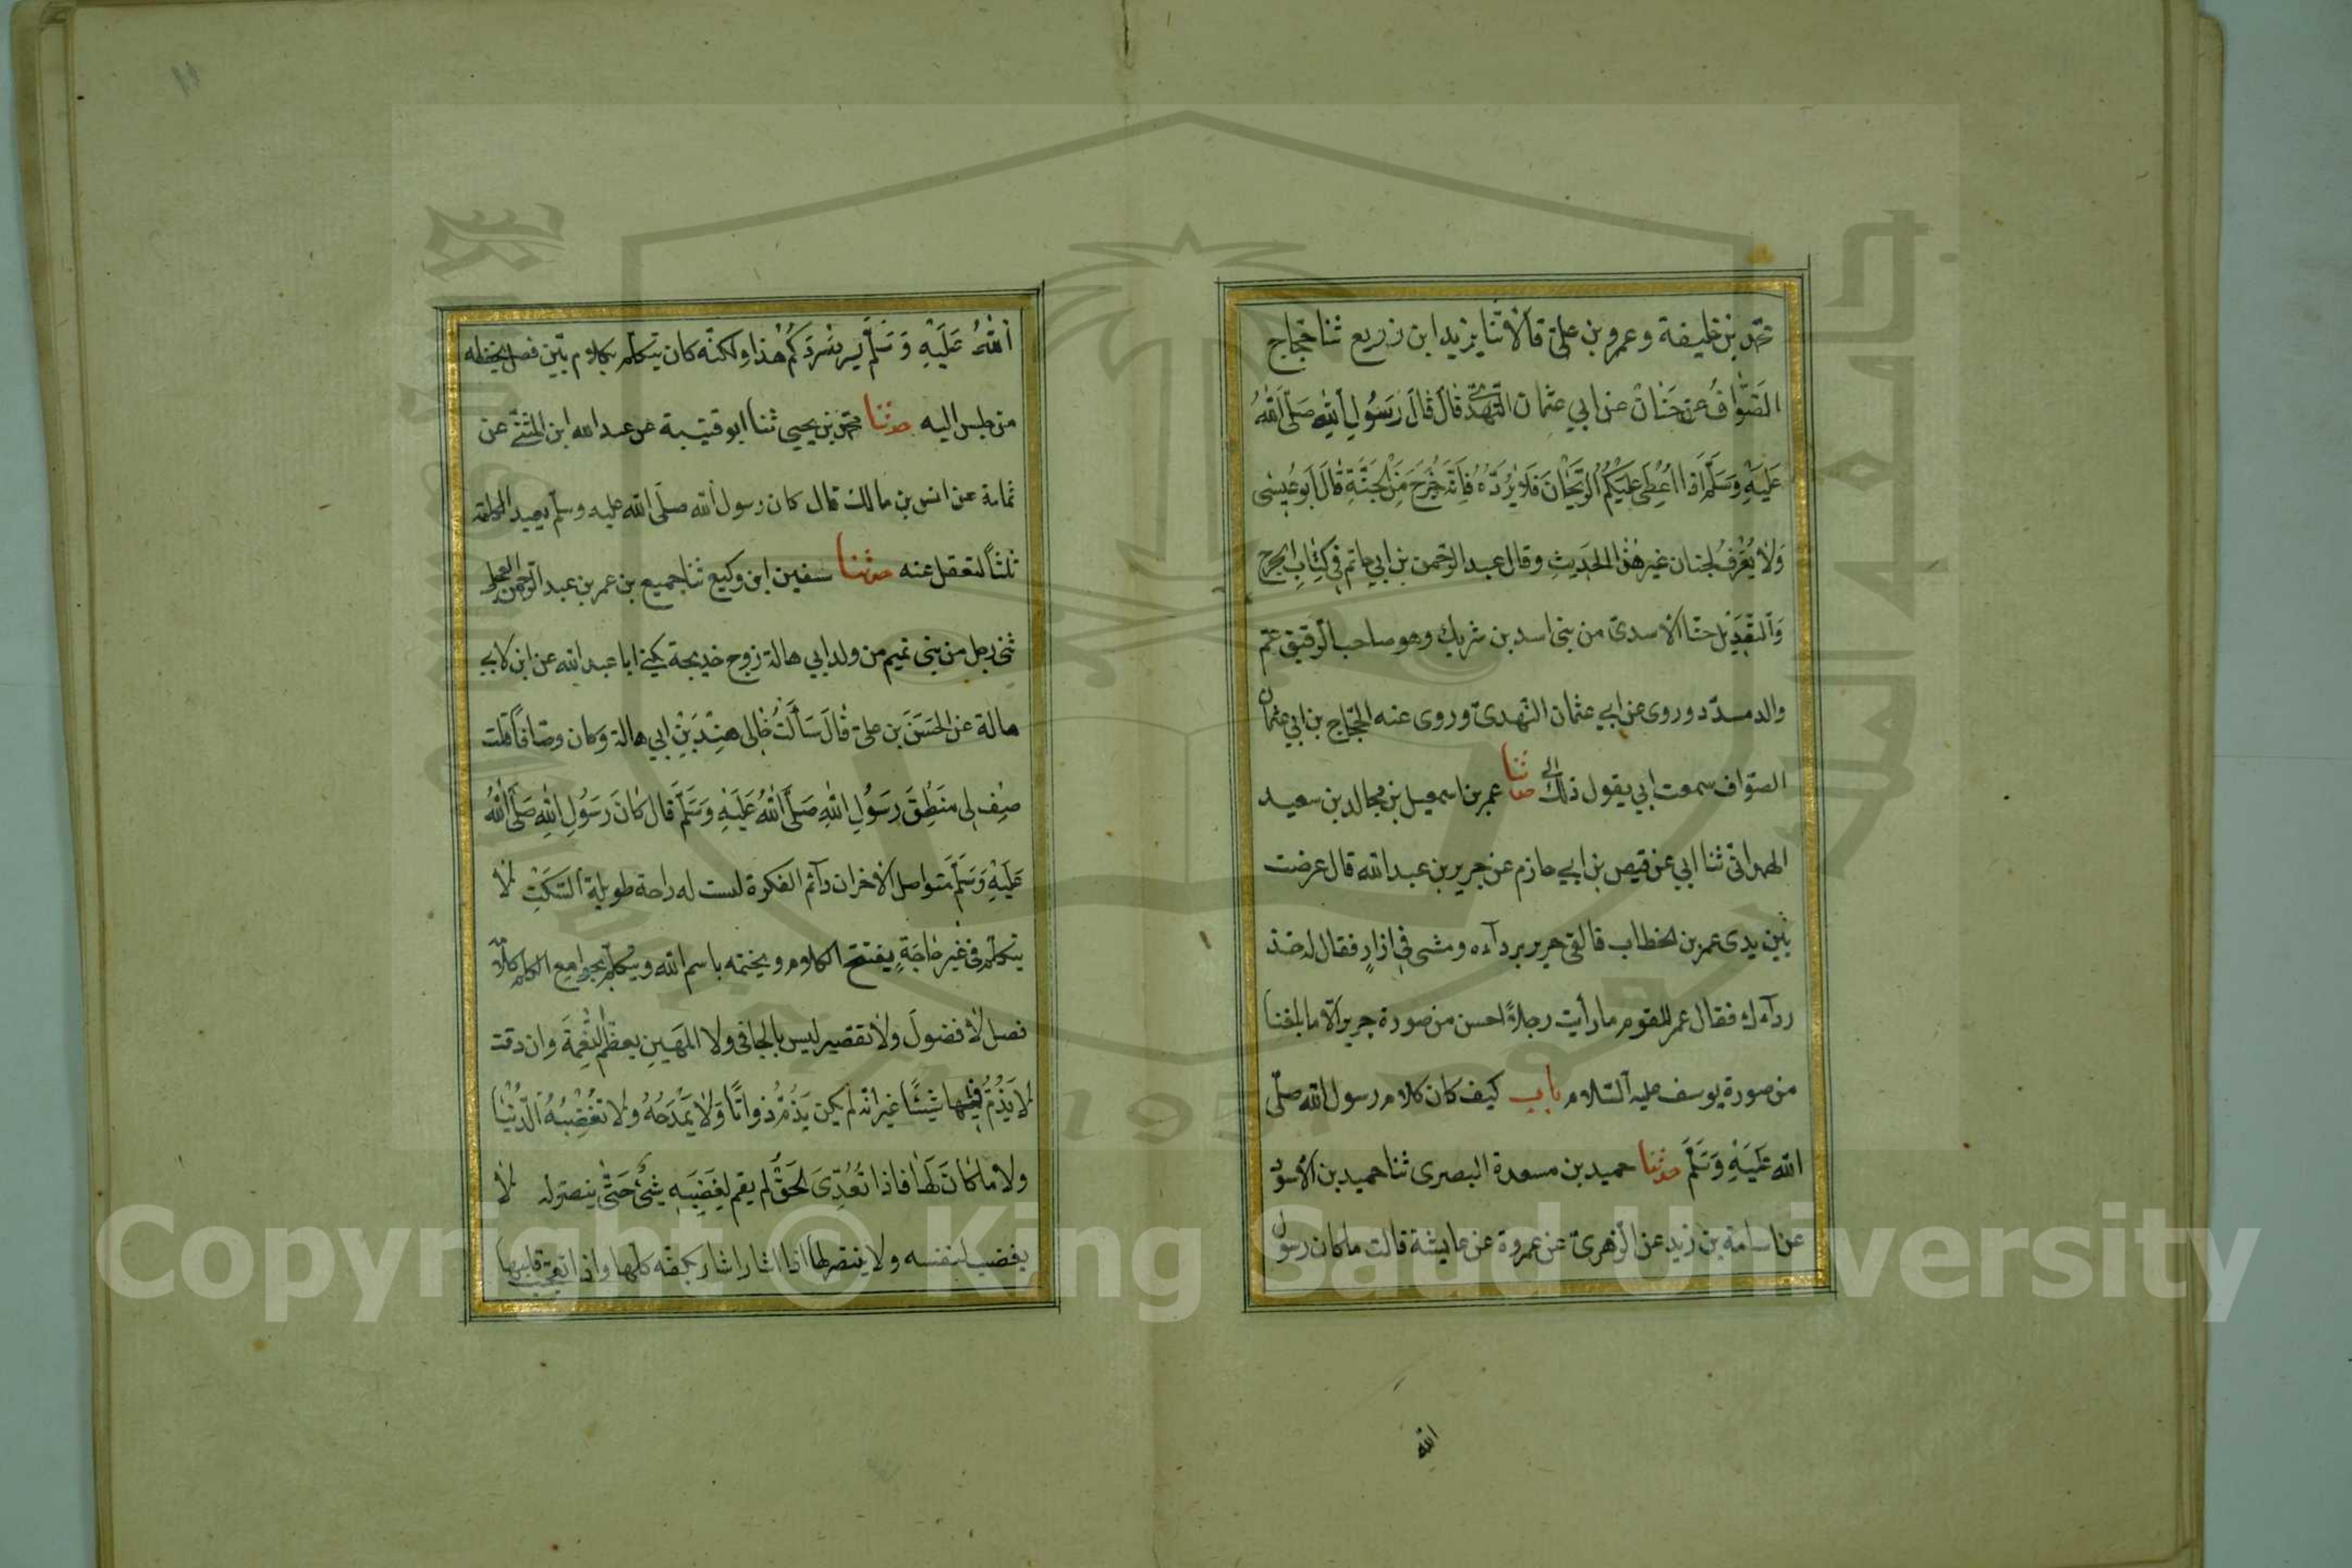 محمد بن خليفة وعمرو بن علىّ قالا ثنا يزيد ابن زريع ثنا حجّاج
الصّوّاف عن حنان عن ابي عثمان النّهدىّ قال قال رَسُولِ اللهِ صَلَّى اللهُ
عَلَيْهِ وَسَلَّمَ اذا اُعْطِىَ عَلَيْكُمُ الرَّيْحَانَ فَلَا يَرُدَّهُ فَاِنَّهُ خَرَجَ مِنَ الجَنَّةِ قَالَ اَبو عيسٰى
وَلَا يُعْرَفُ لحنان غير هٰذا الحَدِيثِ وقال عبد الرّحمن بن ابي حاتم فى كِتَابِ الجرح
وَالتَّعْدِيْل حنّا الاسدىّ من بنى اسد بن شريك وهو صاحب الرّقيق عمّ
والد مسدّد وروى عن ابي عثمان النّهدىّ وروى عنه الحجّاج بن ابي عثمان
الصوّاف سمعت ابي يقول ذلك حدثنا عمر بن اسمعيل بن مجالد بن سعيد
الهمدانىّ ثنا ابي عن قيص بن ابي حازم عن جرير بن عبد الله قال عرضت
بَيْن يدى عمر بن الخطاب فالقى جرير بردآءه ومشى فى ازارٍ فقال له خذ
ردآءك فقال عمر للقوم ما رأيت رجلاً احسن من صورة جرير الّا ما بلغنا
من صورة يوسف عليه السّلام باب كيف كان كلام رسول الله صلّى
الله عَلَيْهِ وَسَلَّمَ حدثنا حميد بن مسعدة البصرى ثنا حميد بن الاسود
عن اسامة بن زيد عن الزّهرىّ عن عروة عن عايشة قالت ما كان رسول
الله
اللهُ عَلَيْهِ وَسَلَّمَ يسرد سَرْدَكُمْ هٰذا ولكنّه كان يتكلّم بكلام بَيّن فصل يحفظه
من جلس اليه حدثنا محمّد بن يحيى ثنا ابو قتيبة عن عبد الله ابن المثنّى عن
ثمامة عن انس بن مالك قال كان رسول الله صلّى الله عليه وسلّم يعيد الكلمة
ثلثاً لتعقل عنه حدثنا سفين ابن وكيع ثنا جميع بن عمر بن عبد الرّحمن العجلى
ثنى رجل من بنى تميم من ولد ابي هالة زوج خديجة يكنى ابا عبد الله عن ابن لابي
هالة عن الحَسَنَ بن علىّ قَالَ سَأَلْتُ خَالى هِنْدَ بْنِ ابي هالة وكان وصّافاً قلت
صِف لى مَنطِقَ رَسُولِ اللهِ صَلَّى اللهُ عَلَيْهِ وَسَلَّمَ قال كَانَ رَسُولِ اللهِ صَلَّى اللهُ
عَلَيْهِ وَسَلَّمَ متواصل الاخزان دآئم الفكرة ليست له راحة طويلة السَّكت لا
يتكلّم فى غَيْرِ حَاجَةٍ يفتتح الكلام ويختمه باسم الله ويتكلّم بجوامع الكلم كلامه
فصل لا فضول ولا تقصير ليس بالجافى ولا المهين يعظّم النّعمة وان دقت
لا يَذُمُّ مِنها شَيْئًا غير انه لم يكن يَذُمّ ذواقًا وَلَا يَمْدَحُهُ ولا تُغْضِبُهُ الدُّنْيَا
ولا ما كانَ لَهَا فاذا تُعُدِّىَ الحَقّ لم يقم لِغَضَبِهِ شئ حَتّى ينتصر له لا
يغضب لنفسه ولا ينتصر لها اذا اشار اشار بكفّه كلّها واذا تعجّب قلبها
Copyright © King Saud University
1957